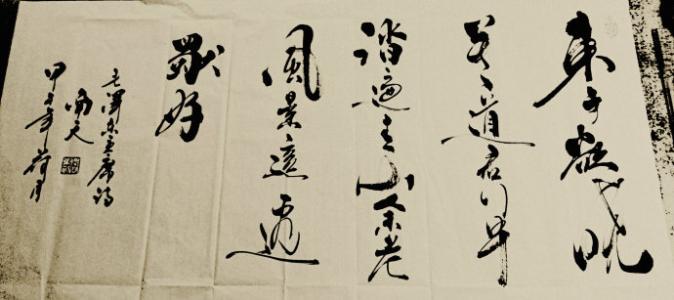 東方欲晓
莫道君行早
踏遍青山人未老
風景這邊
獨好
毛澤東主席詩
甲午年荷月